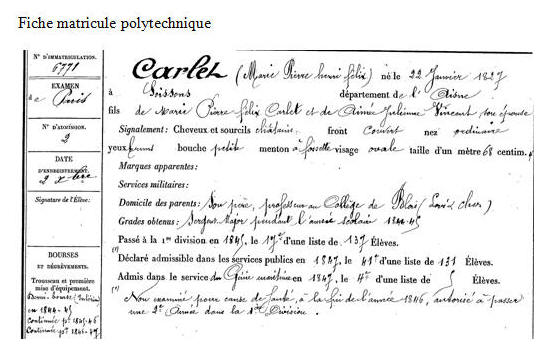 Fiche matricule polytechnique
N° D'IMMATRICULATION.
6771
EXAMEN
de Paris
N° D'ADMISSION.
2
DATE
D'ENREGISTREMENT.
2 xbre
Signature de l'Élève:
BOURSES
ET DÉGRÈVEMENTS.
Trousseau et première
mise d'équipement.
Demi-bourse (Intérieur)
en 1844-45
Continuée pr 1845-46
Continuée pr 1846-47
Carlet (Marie Pierre henri félix) né le 22 Janvier 1827
à Soissons département de l'Aisne
fils de Marie Pierre félix Carlet et de Aimée Julienne Vincent son épouse
Signalement: Cheveux et sourcils châtains front couvert nez ordinaire
yeux bruns bouche petite menton à fossette visage ovale taille d'un mètre 68 centim.
Marques apparentes:
Services militaires:
Domicile des parents: Son père, professeur au Collège de Blois (Loir & cher)
Grades obtenus: Sergent-Major pendant l'année scolaire 1844-45
Passé à la 1re division en 1845, le 17e d'une liste de 137 Élèves.
(1)
Déclaré admissible dans les services publics en 1847, le 41e d'une liste de 131 Élèves.
Admis dans le service du Génie maritime en 1847, le 4e d'une liste de 5 Élèves.
(1) Non examiné pour cause de santé, à la fin de l'année 1846, autorisé à passer
une 2e Année dans la 1re Division.